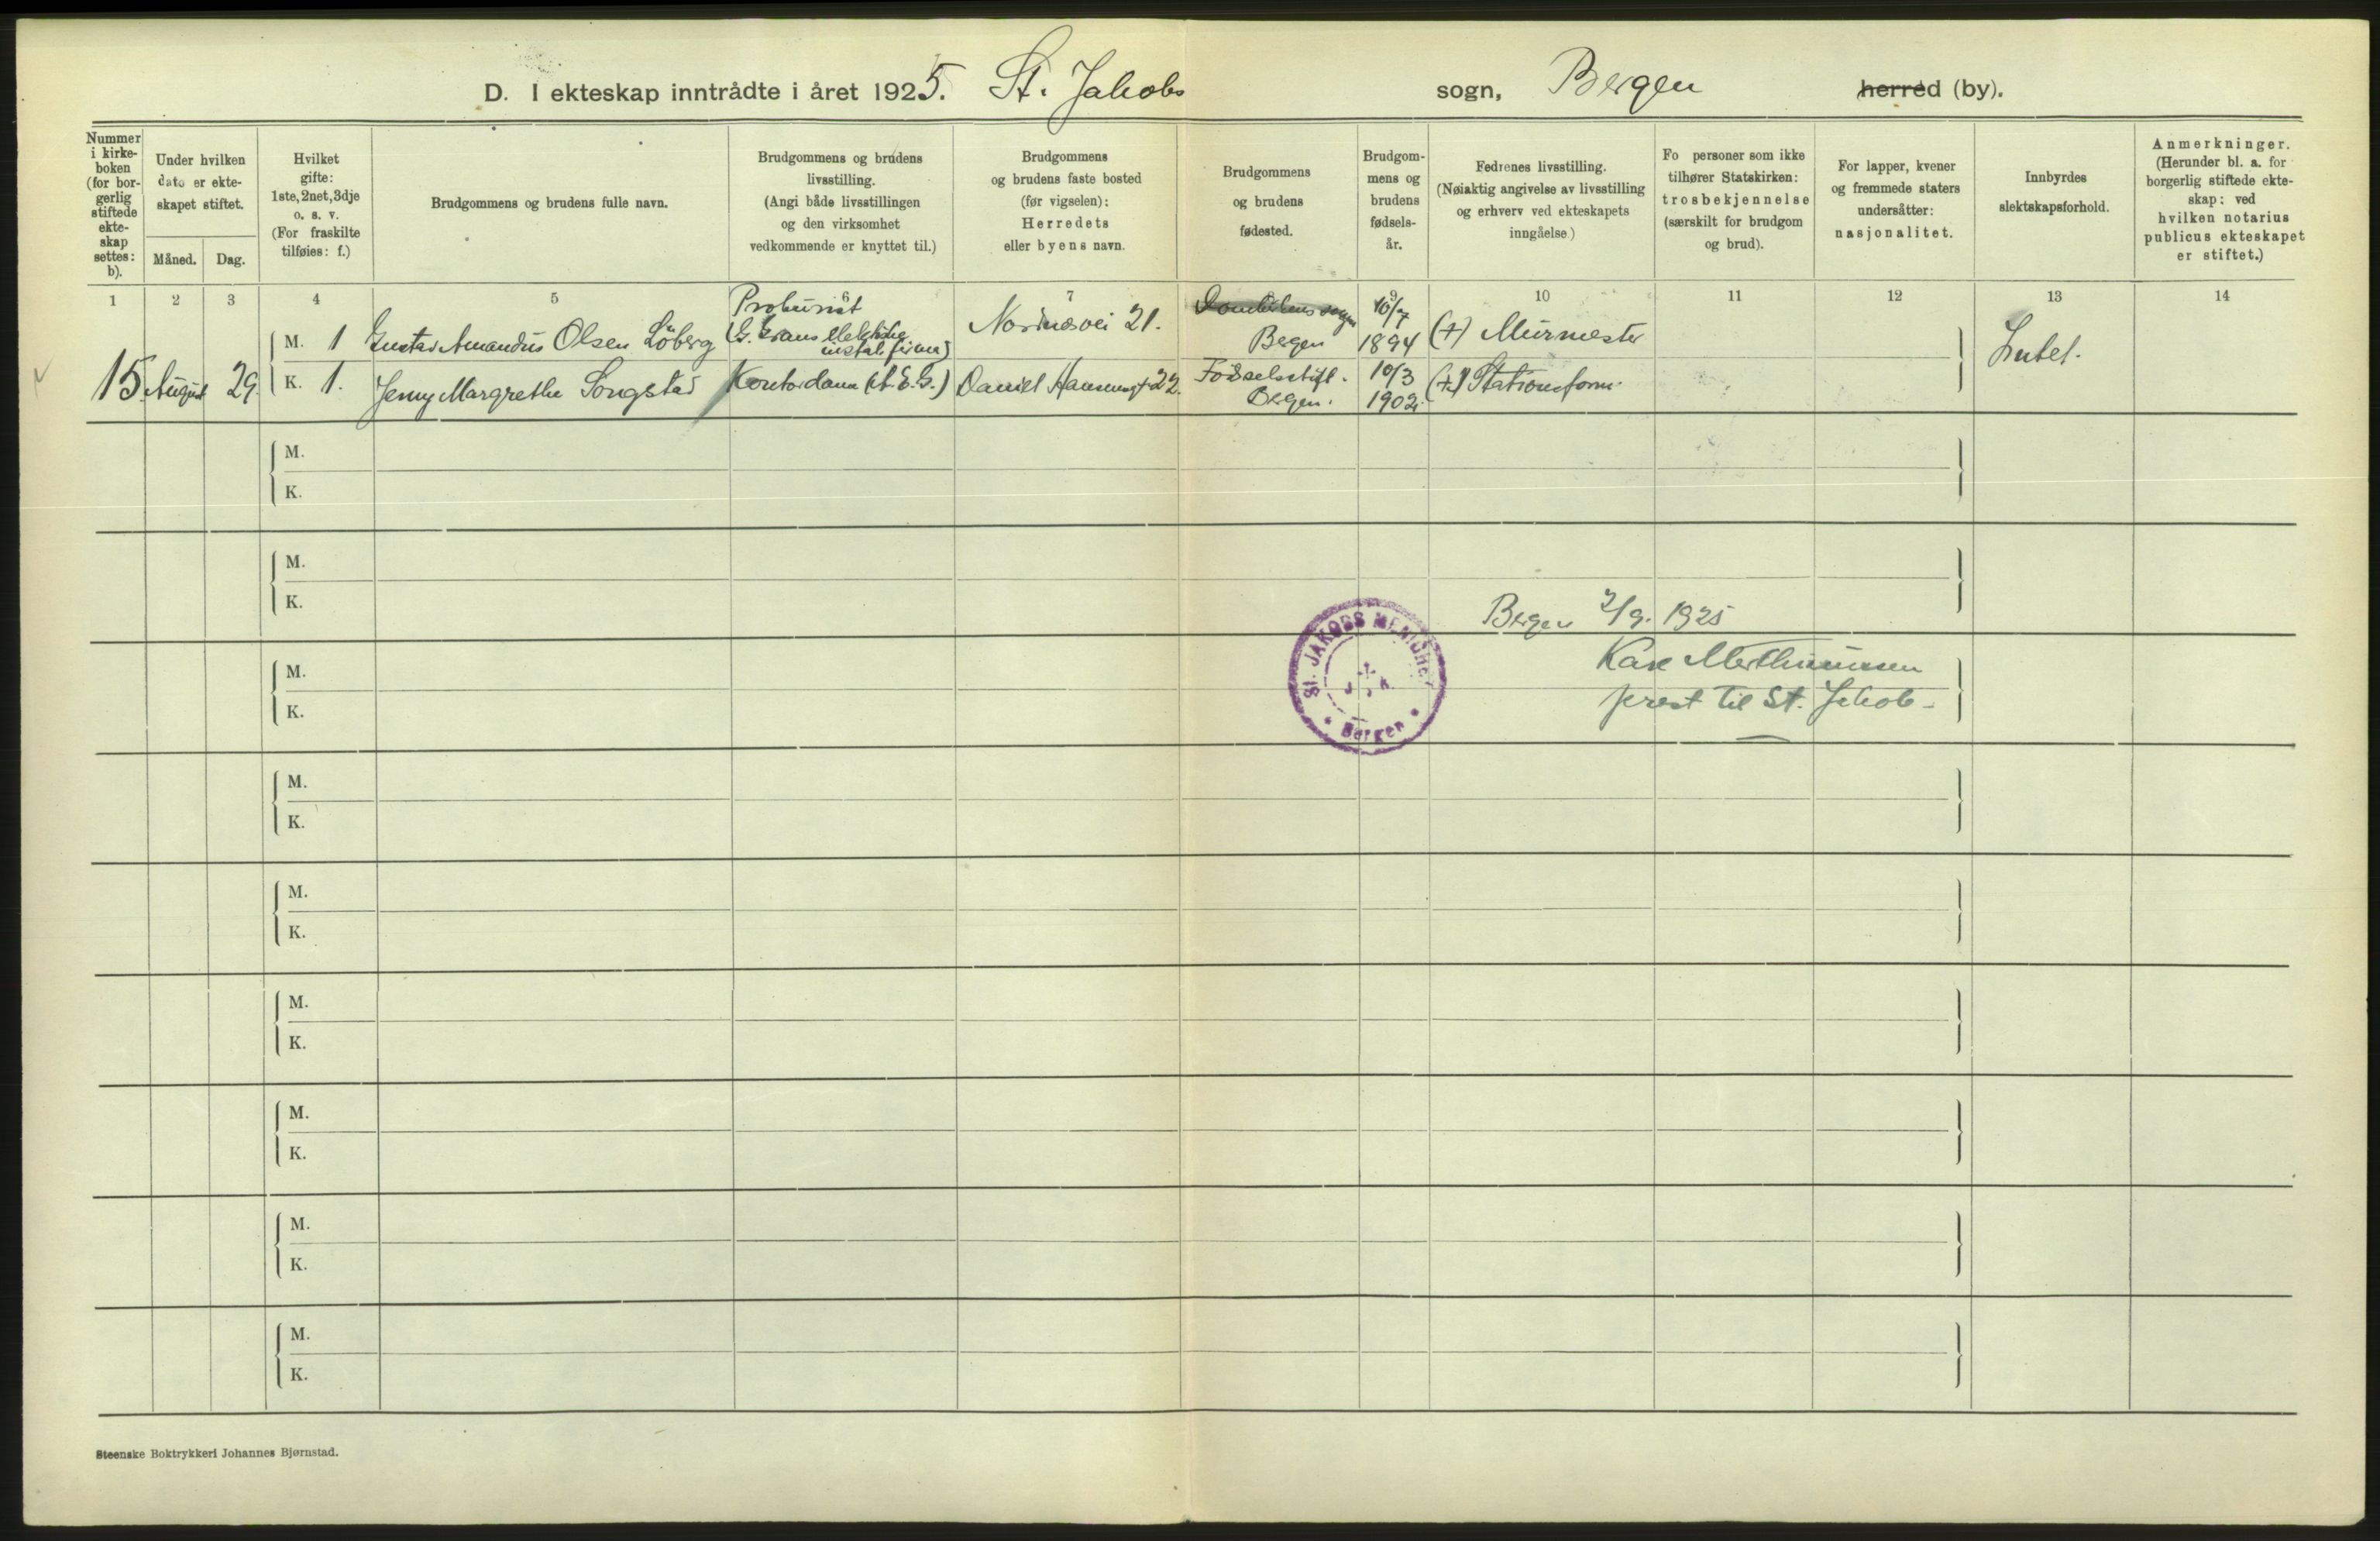 D. I ekteskap inntrådte i året 1925. St. Jakobs sogn, Bergen herred (by).
Nummer i kirke- boken (for bor- gerlig stiftede ekte- skap settes: b).
Under hvilken dato er ekte- skapet stiftet.
Måned. Dag.
Hvilket gifte: 1ste, 2net, 3dje o. s. v. (For fraskilte tilføies: f.)
Brudgommens og brudens fulle navn.
Brudgommens og brudens livsstilling. (Angi både livsstillingen og den virksomhet vedkommende er knyttet til.)
Brudgommens og brudens faste bosted (før vigselen): Herredets eller byens navn.
Brudgommens og brudens fødested.
Brudgom- mens og brudens fødsels- år.
Fedrenes livsstilling. (Nøiaktig angivelse av livsstilling og erhverv ved ekteskapets inngåelse)
Fo personer som ikke tilhører Statskirken: trosbekjennelse (særskilt for brudgom og brud).
For lapper, kvener og fremmede staters undersåtter: nasjonalitet.
Innbyrdes slektskapsforhold.
Anmerkninger. (Herunder bl. a. for borgerlig stiftede ekte- skap: ved hvilken notarius publicus ekteskapet er stiftet.)
1 2 3 4 5 6 7 8 9 10 11 12 13 14
15 August 29.
M. 1 Gustav Amandus Olsen Löberg Prokurist (G. Grans elektriske install. firma) Nordnæsvei 21. Bergen 10/7 1894 (+) Murmester
K. 1. Jenny Margrethe Songstad Kontordame (A.E.G.) Daniel Hansensgt 22. Fødselsstift. Bergen. 10/3 1902. (+) Stationsform.
Intet.
M.
K.
M.
K.
Bergen 2/9. 1925
M.
K.
prest til St. Jakob.
ST. JAKOBS MENIGHET Bergen
M.
K.
M.
K.
M.
K.
M.
K.
M.
K.
M.
K.
Steenske Boktrykkeri Johannes Bjørnstad.